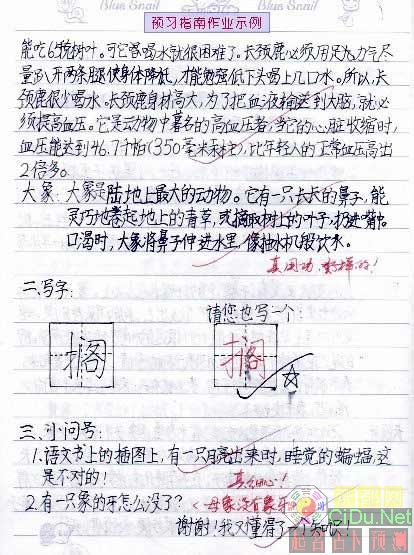 Blue Snail
预习指南作业示例
Blue Snail
能吃63千克树叶。可它若喝水就很困难了。长颈鹿必须用尽九力气尽
量趴开两条腿使身体降低,才能勉强低下头喝上几口水。所以,长
颈鹿很少喝水。长颈鹿身材高大,为了把血液输送到大脑,就必
须提高血压。它是动物中著名的高血压者,当它的心脏收缩时,
血压能达到46.7千帕(350毫米汞柱),比年轻人的正常血压高出
2倍多。
大象:大象是陆地上最大的动物。它有一只长长的鼻子,能
灵巧地卷起地上的青草,或摘取树上的叶子,扔进嘴中。
口渴时,大象将鼻子伸进水里,像抽水机般饮水。
真用功,好样的!
二、写字:
请您也写一个
搁
搁
三、小问号:
1.语文书上的插图上,有一只月亮出来时,睡觉的蝙蝠,这
是不对的!
真细心!
2.有一只象的牙怎么没了?
母象没有象牙
谢谢!我又懂得了一个知识!
CiDu.Net